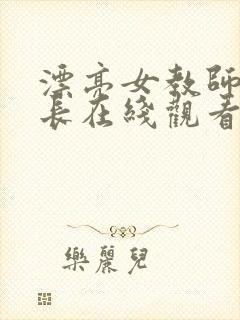 漂亮女教師
長在綫觀看
樂麗兒